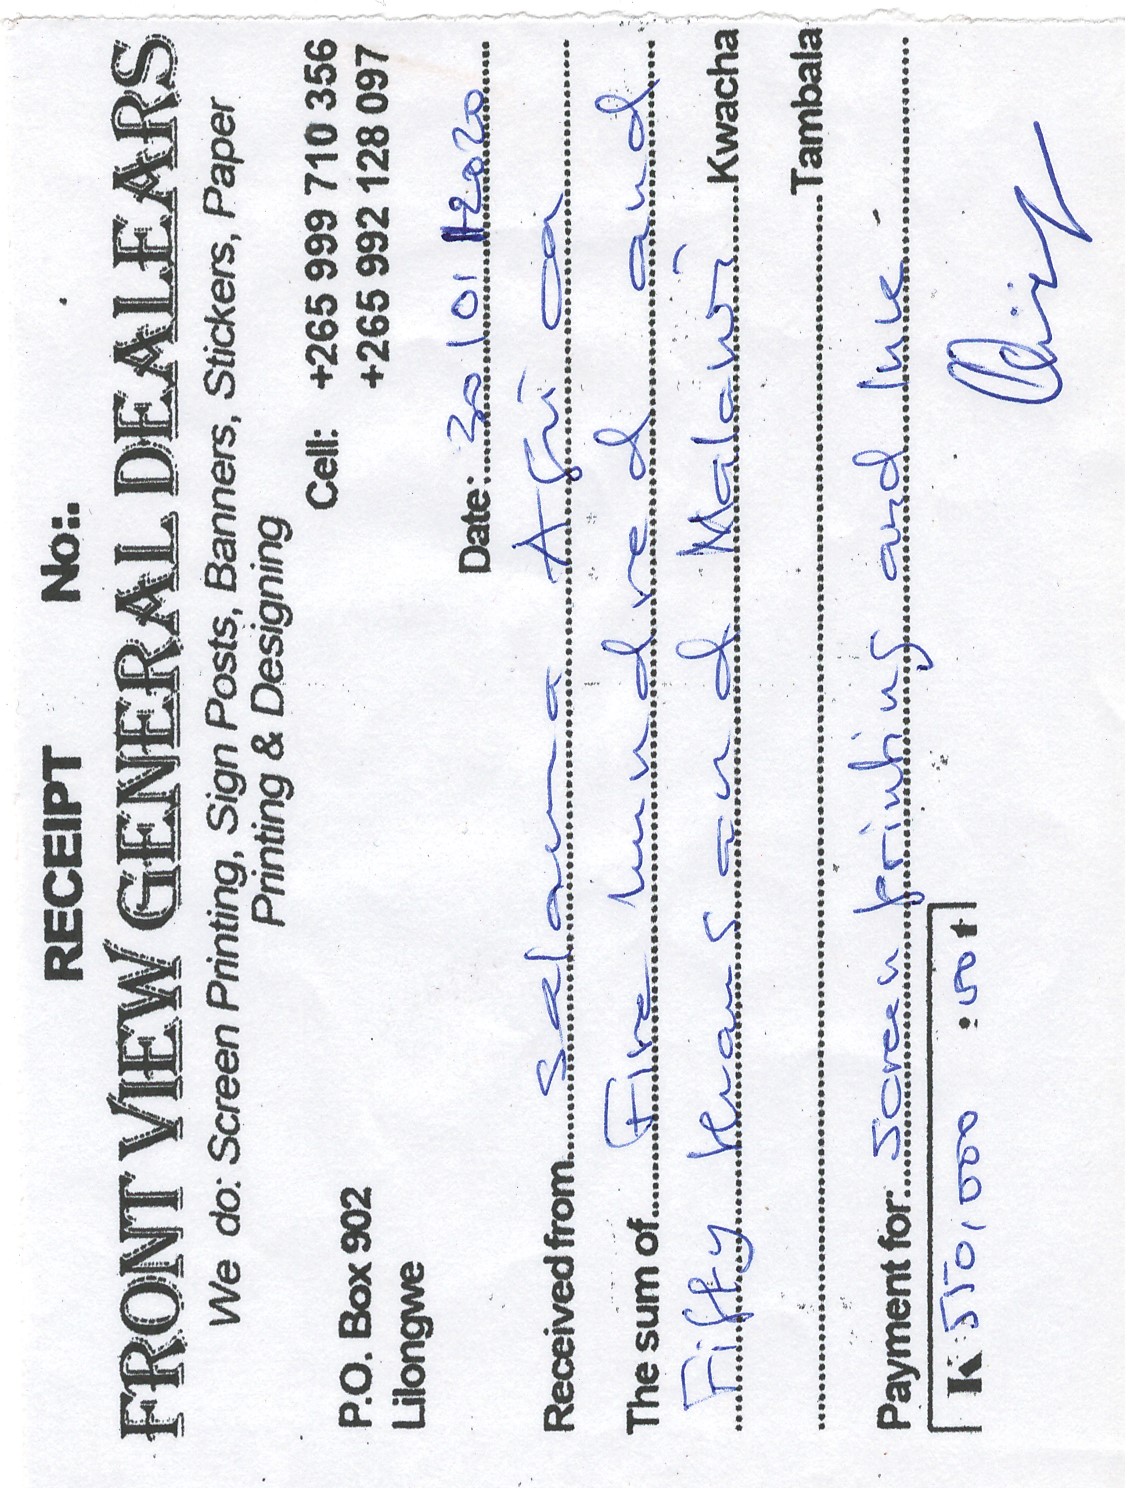 RECEIPT No:.
FRONT VIEW GENERAL DEALEARS
We do: Screen Printing, Sign Posts, Banners, Stickers, Paper
Printing & Designing
P.O. Box 902
Lilongwe
Cell: +265 999 710 356
+265 992 128 097
Date: 30/01/2020
Received from Salama Africa
The sum of Five hundred and
Fifty thousand Malawi Kwacha
Tambala
Payment for: Screen printing and Ink
K 550,000 :00 t